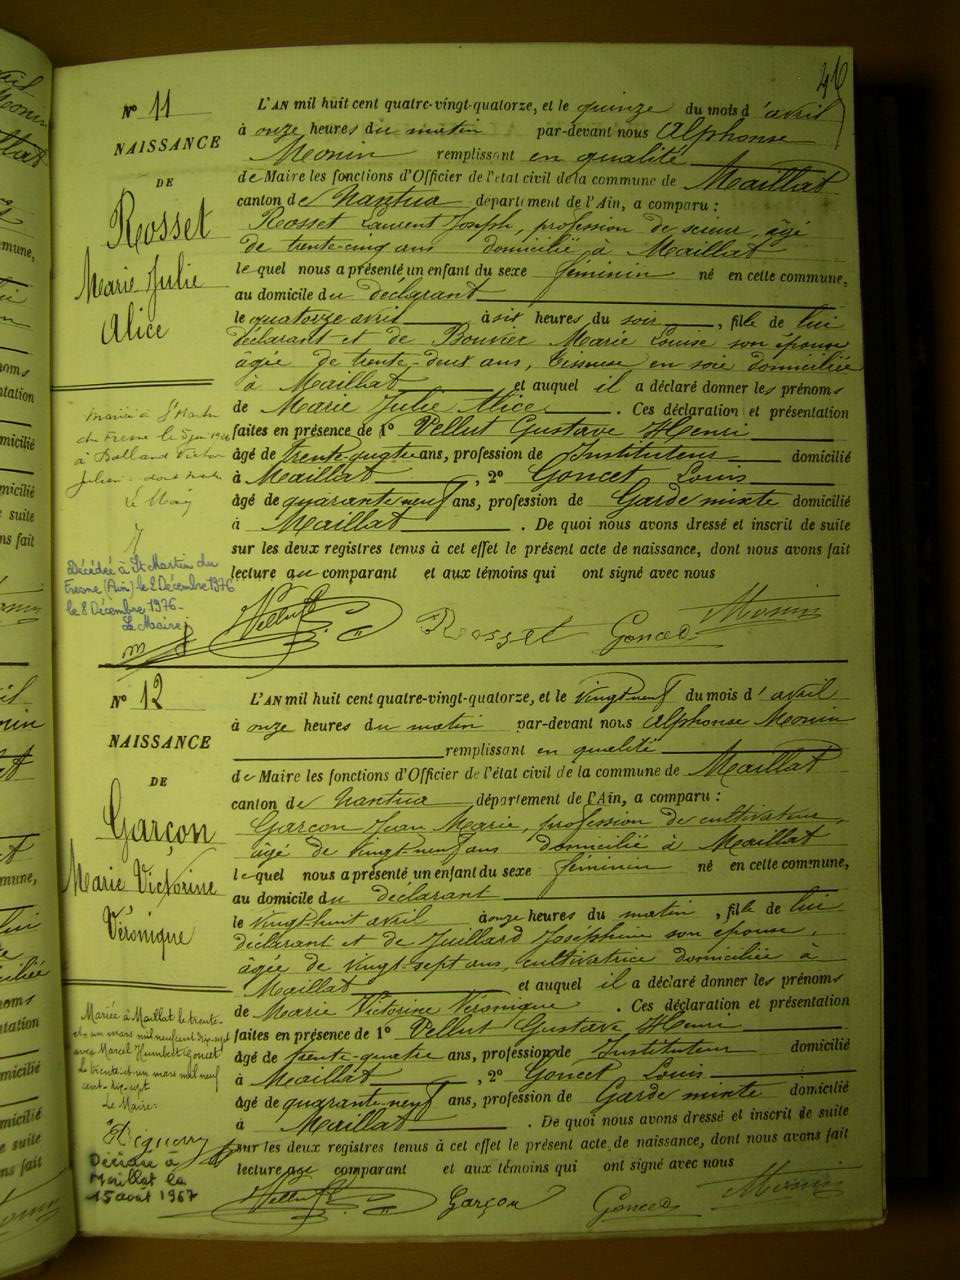 46
N° 11
NAISSANCE
DE
Rosset
Marie Julie
Alice
L'AN mil huit cent quatre-vingt-quatorze, et le quinze du mois d'avril
à onze heures du matin par-devant nous Alphonse
Monin remplissant en qualité
de Maire les fonctions d'Officier de l'état civil de la commune de Maillat
canton de Nantua département de l'Ain, a comparu :
Rosset Laurent Joseph, profession de scieur, âgé
de trente-cinq ans domicilié à Maillat
lequel nous a présenté un enfant du sexe féminin né en cette commune,
au domicile du déclarant
le quatorze avril à six heures du soir, fille de lui
déclarant et de Bouvier Marie Louise son épouse
âgée de trente-deux ans, tisseuse en soie domiciliée
à Maillat et auquel il a déclaré donner les prénoms
de Marie Julie Alice. Ces déclaration et présentation
faites en présence de 1° Vellut Gustave Henri
âgé de trente-quatre ans, profession de Instituteur domicilié
à Maillat, 2° Goncet Louis
âgé de quarante-neuf ans, profession de Garde mixte domicilié
à Maillat. De quoi nous avons dressé et inscrit de suite
sur les deux registres tenus à cet effet le présent acte de naissance, dont nous avons fait
lecture au comparant et aux témoins qui ont signé avec nous
Vellut Rosset Goncet Monin
Mariée à St Martin
du Fresne le 5 juin
à Balland Victor
Julien
Le Maire
Décédée à St Martin du
Fresne (Ain) le 2 Décembre 1976
le 8 Décembre 1976-
Le Maire
N° 12
NAISSANCE
DE
Garçon
Marie Victorine
Véronique
L'AN mil huit cent quatre-vingt-quatorze, et le vingt-neuf du mois d'avril
à onze heures du matin par-devant nous Alphonse Monin
remplissant en qualité
de Maire les fonctions d'Officier de l'état civil de la commune de Maillat
canton de Nantua département de l'Ain, a comparu :
Garçon Jean Marie, profession de cultivateur,
âgé de vingt-neuf ans domicilié à Maillat
lequel nous a présenté un enfant du sexe féminin né en cette commune,
au domicile du déclarant
le vingt-huit avril à onze heures du matin, fille de lui
déclarant et de Juillard Joséphine son épouse,
âgée de vingt-sept ans, cultivatrice domiciliée à
Maillat et auquel il a déclaré donner les prénoms
de Marie Victorine Véronique. Ces déclaration et présentation
faites en présence de 1° Vellut Gustave Henri
âgé de trente-quatre ans, profession de Instituteur domicilié
à Maillat, 2° Goncet Louis
âgé de quarante-neuf ans, profession de Garde mixte domicilié
à Maillat. De quoi nous avons dressé et inscrit de suite
sur les deux registres tenus à cet effet le présent acte de naissance, dont nous avons fait
lecture au comparant et aux témoins qui ont signé avec nous
Vellut Garçon Goncet Monin
Mariée à Maillat le trente-
et-un mars mil neuf cent dix-sept
avec Marcel Humbert Goncet
Le trente-et-un mars mil neuf
cent-dix-sept
Le Maire:
Décédée à
Maillat le
15 avril 1967